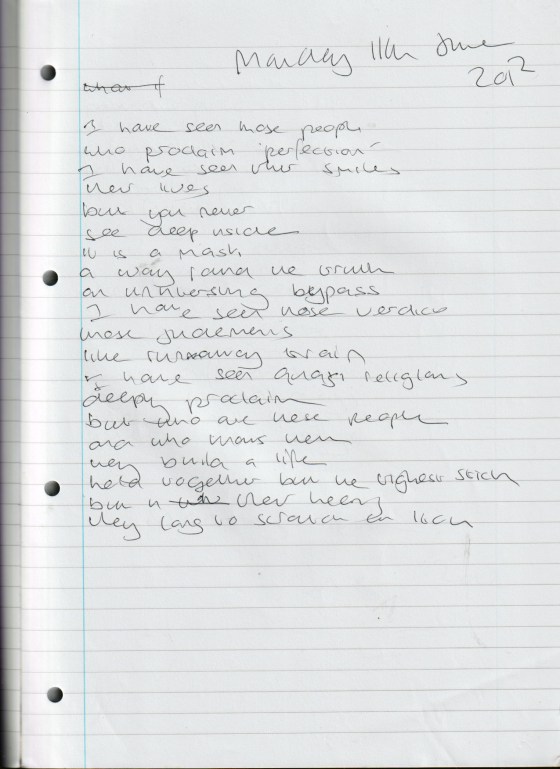 Monday 11th June
2012
what if
I have seen those people
who proclaim 'perfection'
I have seen their smiles
their lives
but you never
see deep inside
it is a mask
a way round the truth
an unnversing bypass
I have seen those verdicts
those judements
like runaway train
I have seen quazi religions
deeply proclaim
but who are these people
and who mans them
they build a life
held together but the tighest stich
but in their heart
they long to scratch an itch